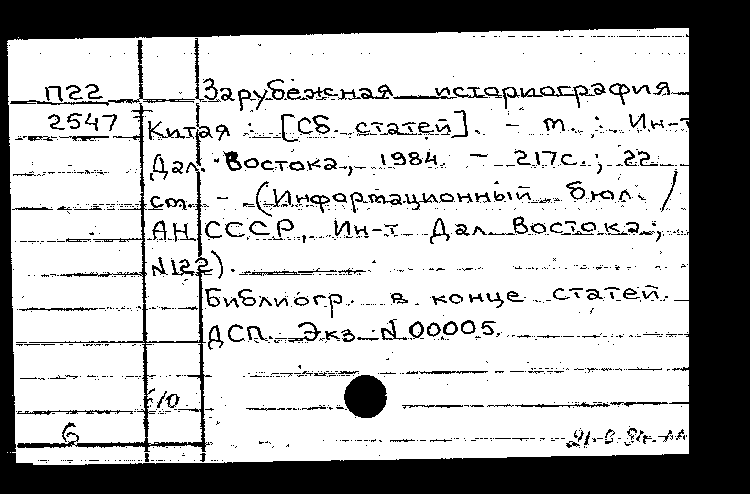 П22 Зарубежная историография
2547 Китая : [Сб. статей]. - М. : Ин-т
Дал. Востока, 1984. - 217с.; 22
см. - (Информационный бюл. /
АН СССР, Ин-т Дал. Востока;
N122).
Библиогр. в конце статей.
ДСП. Экз. N 00005.
б/о
6